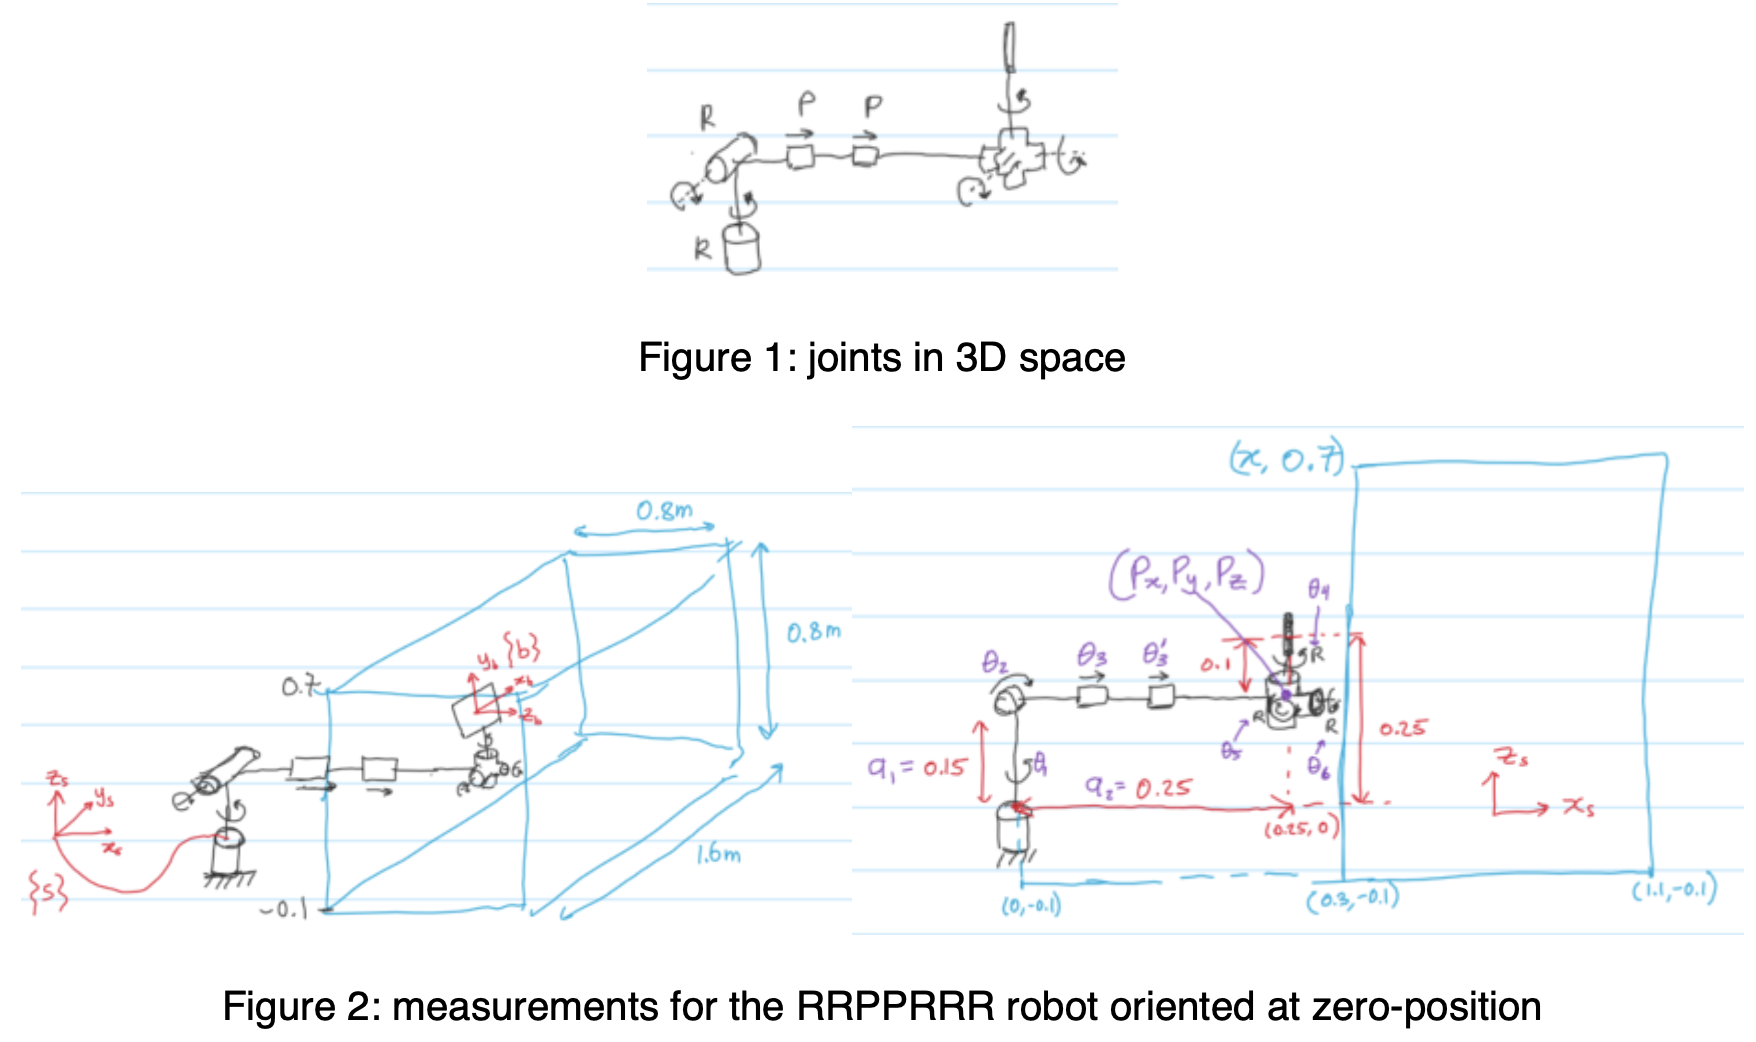 R
P
P
R
Figure 1: joints in 3D space
0.8m
0.8m
1.6m
0.7
-0.1
y_b {b}
x_b
z_b
z_s
y_s
x_s
{s}
(x, 0.7)
(Px, Py, Pz)
θ4
R
θ2
θ3
θ3'
0.1
R
R
θ5
θ6
0.25
a1 = 0.15
θ1
a2 = 0.25
(0.25, 0)
z_s
x_s
(0,-0.1)
(0.3,-0.1)
(1.1,-0.1)
Figure 2: measurements for the RRPPRRR robot oriented at zero-position